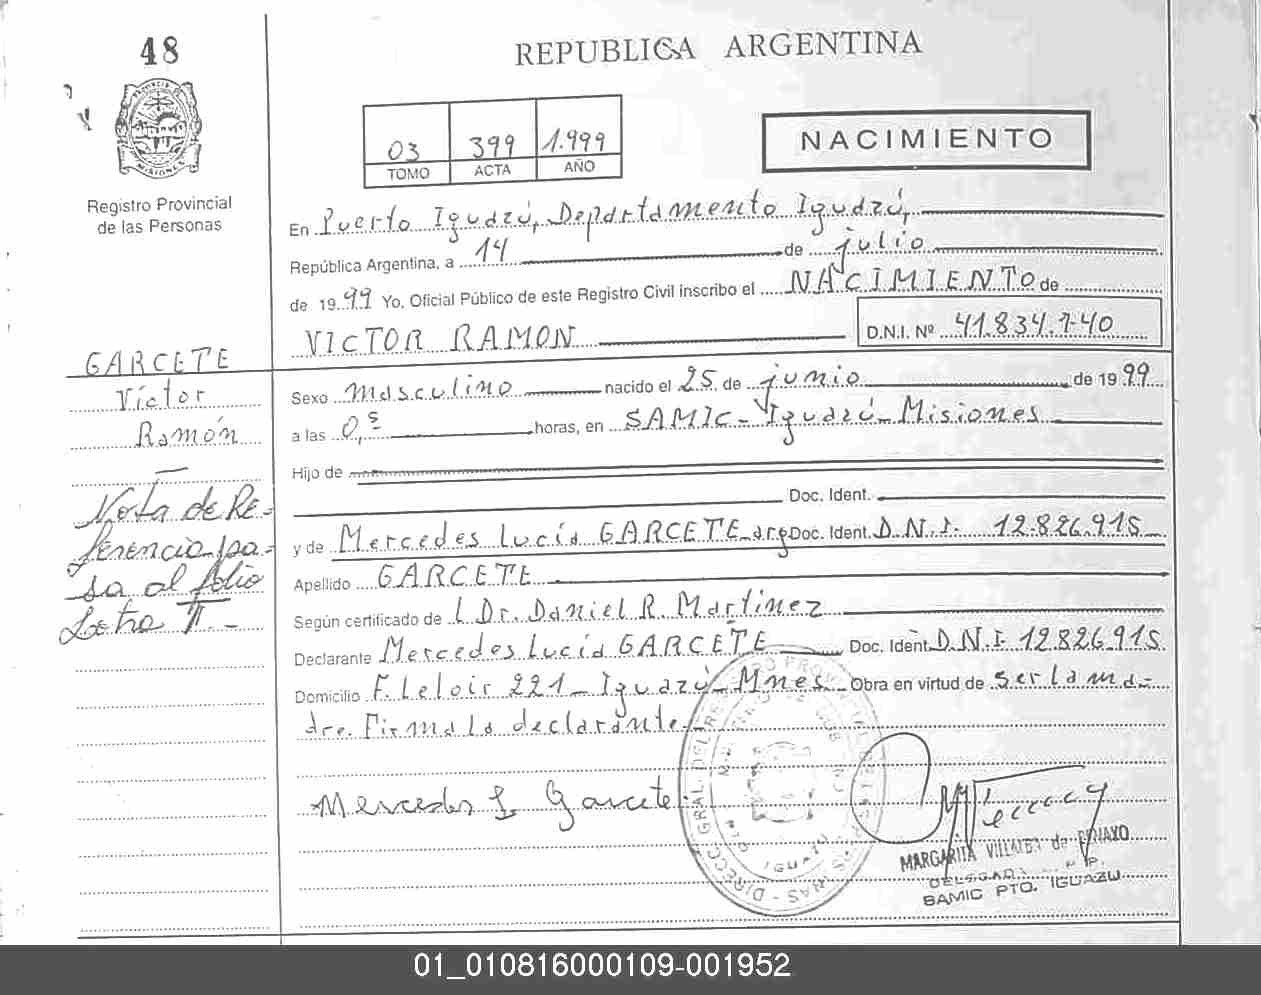 48
REPUBLICA ARGENTINA
Registro Provincial
de las Personas
03 399 1.999
TOMO ACTA AÑO
NACIMIENTO
En Puerto Iguazú, Departamento Iguazú,
República Argentina, a 14 de julio
de 1999 Yo, Oficial Público de este Registro Civil inscribo el NACIMIENTO de
VICTOR RAMON D.N.I. Nº 41.834.740
GARCETE
Víctor
Ramón
Nota de Re-
ferencia pa-
sa al folio
Letra II.-
Sexo masculino nacido el 25 de junio de 1999
a las 0,5 horas, en SAMIC - Iguazú - Misiones
Hijo de
Doc. Ident.
y de Mercedes Lucía GARCETE arg Doc. Ident. D.N.I. 12.826.915
Apellido GARCETE
Según certificado de L Dr. Daniel R. Martinez
Declarante Mercedes Lucía GARCETE Doc. Ident. D.N.I 12.826.915
Domicilio F. Leloir 221 - Iguazú - Mnes. Obra en virtud de ser la ma-
dre. Firma la declarante.
Mercedes L Garcete
MARGARITA VILLALBA de
SAMIC PTO. IGUAZU
01_010816000109-001952